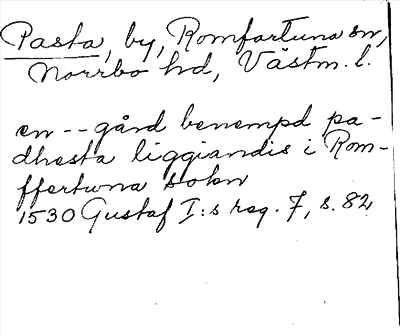 Pasta, by, Romfartuna sn,
Norrbo hd, Västm. l.
en -- gård benempd pa-
dhesta liggiandis i Rom-
ffertuna sokn
1530 Gustaf I:s reg. 7, s. 82